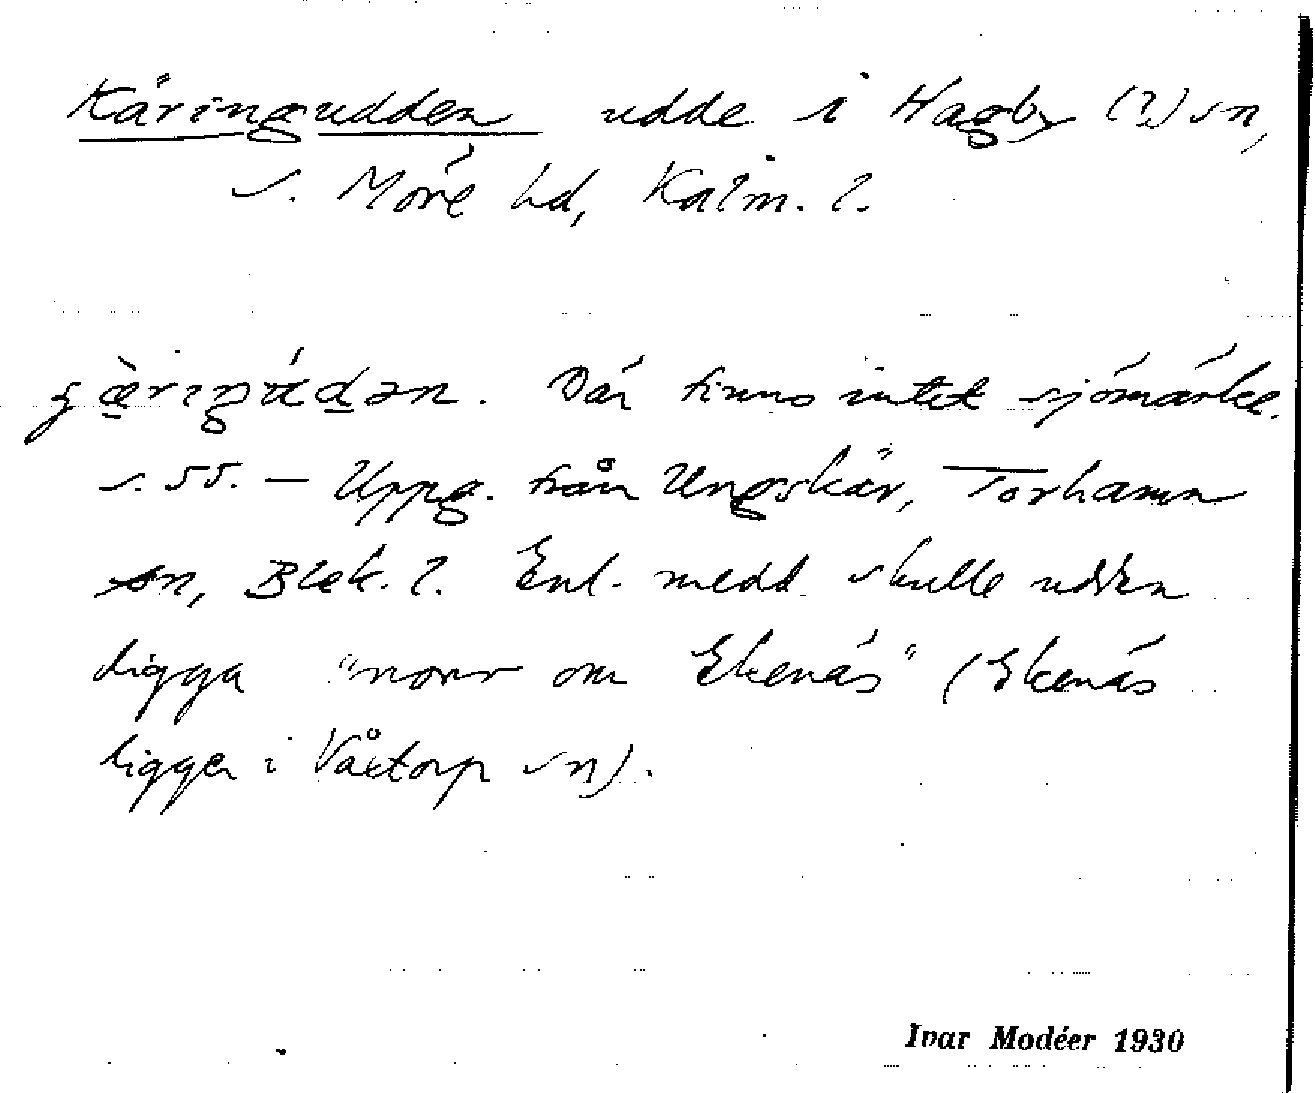 Käringudden udde i Hagby (?) sn,
s. Möre hd, Kalm. l.
Där finns intet sjömärke.
s. 55. — Uppg. från Ungskär, Torhamn
sn, Blek. l. Enl. medd. skulle udden
ligga "norr om Ekenäs" (Ekenäs
ligger i Våxtorp sn).
Ivar Modéer 1930